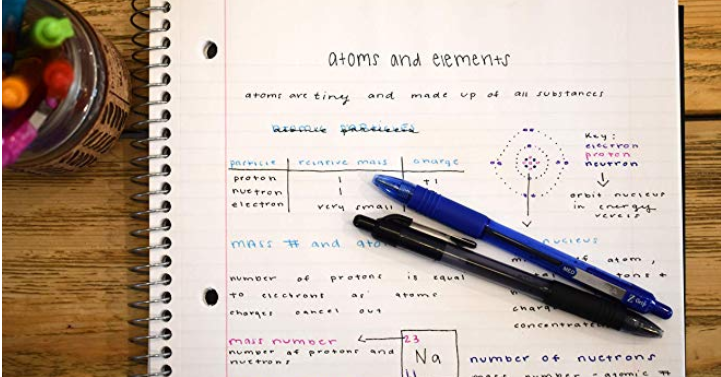 atoms and elements
atoms are tiny and made up of all substances
atomic particles
particle relative mass charge
proton 1 +1
nuetron 1
electron very small
Key:
electron
proton
neutron
orbit nucleus
in energy
levels
mass # and ato
nucleus
atom,
number of protons is equal
to electrons as atoms
charges cancel out
concentrate
mass number
number of protons and
nuetrons
23
Na
11
number of nuetrons
mass number - atomic #
MED
Z Grip